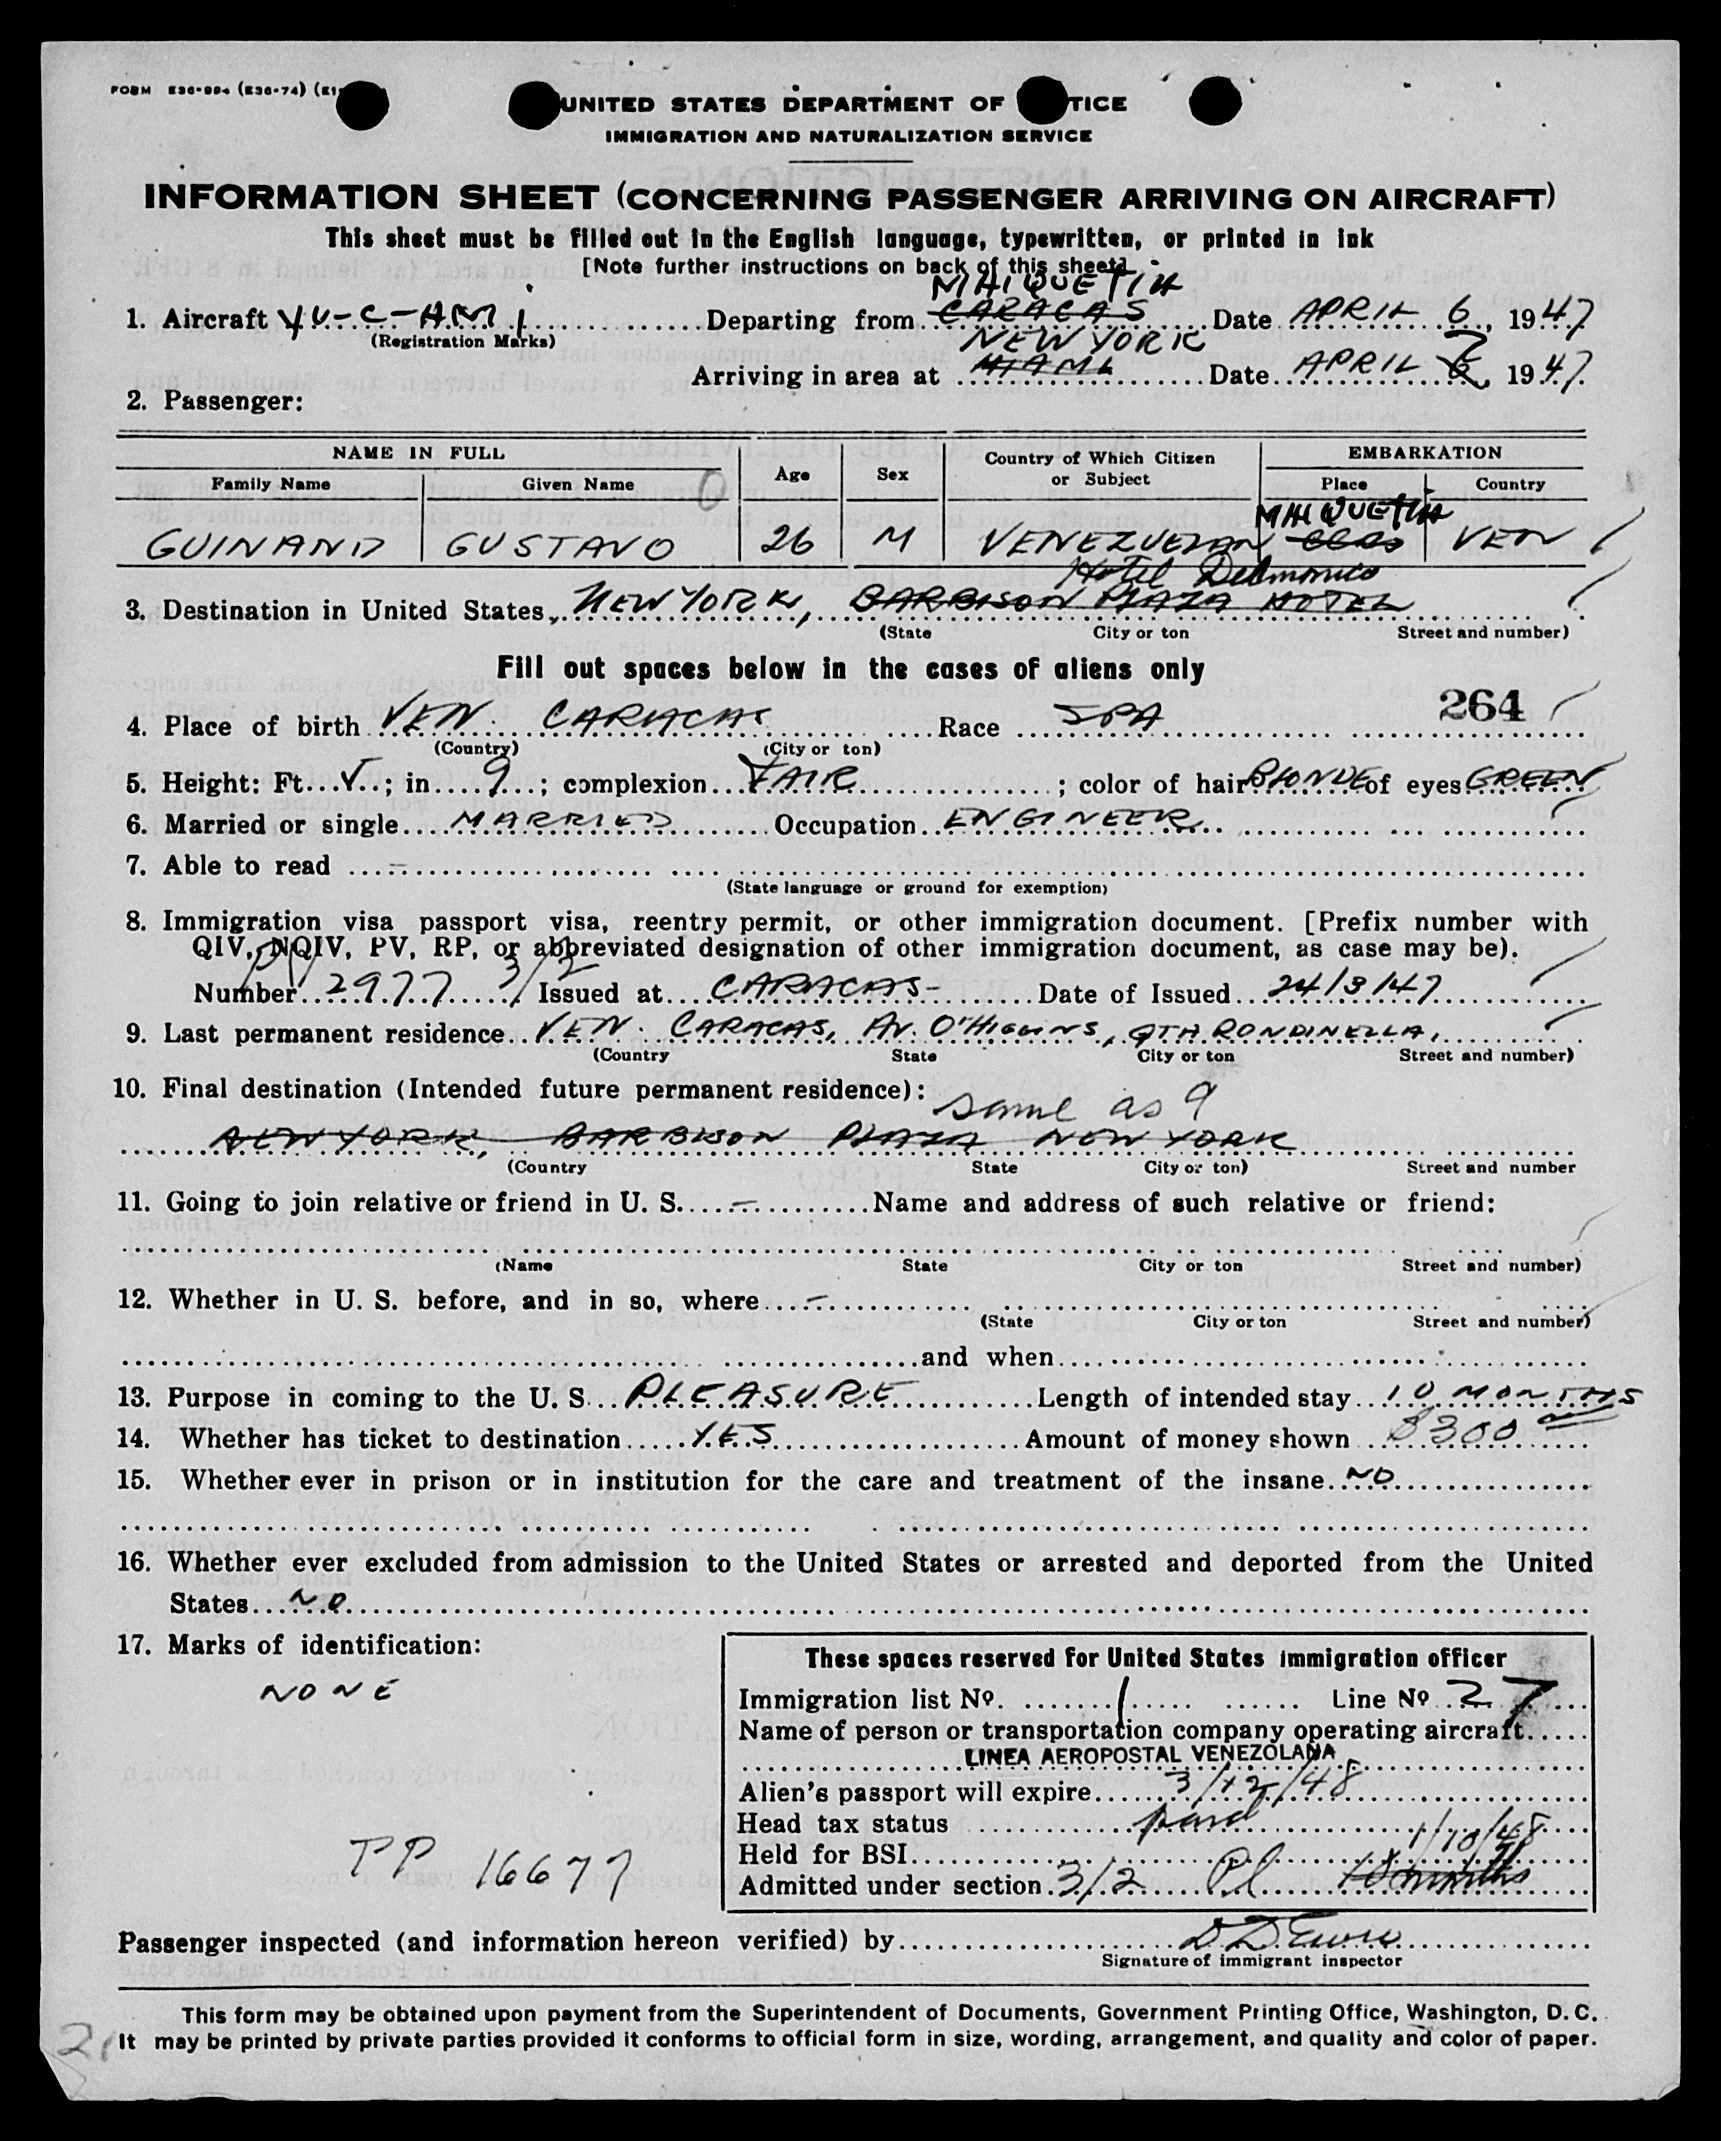 FORM E36-994 (E36-74) (E1
UNITED STATES DEPARTMENT OF TICE
IMMIGRATION AND NATURALIZATION SERVICE
INFORMATION SHEET (CONCERNING PASSENGER ARRIVING ON AIRCRAFT)
This sheet must be filled out in the English language, typewritten, or printed in ink
[Note further instructions on back of this sheet]
MAIQUETIA
1. Aircraft YU-C-AMI Departing from CARACAS Date APRIL 6, 1947
(Registration Marks)
NEW YORK
Arriving in area at MIAMI Date APRIL 7, 1947
2. Passenger:
NAME IN FULL Age Sex Country of Which Citizen or Subject EMBARKATION
Family Name Given Name Place Country
MAIQUETIA
GUINAND GUSTAVO 26 M VENEZUELAN CCAS VEN
Hotel Delmonico
3. Destination in United States, NEW YORK, BARBISON PLAZA HOTEL
(State City or ton Street and number)
Fill out spaces below in the cases of aliens only
264
4. Place of birth VEN. CARACAS Race SPA
(Country) (City or ton)
5. Height: Ft. 5; in. 9; complexion FAIR; color of hair BLONDE of eyes GREEN
6. Married or single MARRIED Occupation ENGINEER
7. Able to read -
(State language or ground for exemption)
8. Immigration visa passport visa, reentry permit, or other immigration document. [Prefix number with
QIV, NQIV, PV, RP, or abbreviated designation of other immigration document, as case may be).
PV 3/2
Number 2977 Issued at CARACAS- Date of Issued 24/3/47
9. Last permanent residence VEN. CARACAS, AV. O'HIGGINS, QTA RONDINELLA,
(Country State City or ton Street and number)
10. Final destination (Intended future permanent residence): same as 9
NEW YORK, BARBISON PLAZA NEW YORK
(Country State City or ton) Street and number
11. Going to join relative or friend in U. S. - Name and address of such relative or friend:
(Name State City or ton Street and number)
12. Whether in U. S. before, and in so, where -
(State City or ton Street and number)
and when
13. Purpose in coming to the U. S. PLEASURE Length of intended stay 10 MONTHS
14. Whether has ticket to destination YES Amount of money shown $300
15. Whether ever in prison or in institution for the care and treatment of the insane. NO
16. Whether ever excluded from admission to the United States or arrested and deported from the United
States NO
17. Marks of identification:
NONE
These spaces reserved for United States immigration officer
Immigration list Nº. 1 Line Nº 27
Name of person or transportation company operating aircraft
LINEA AEROPOSTAL VENEZOLANA
Alien's passport will expire 3/12/48
Head tax status paid
1/10/48
Held for BSI
Admitted under section 3/2 Pl 10 months
TP 16677
Passenger inspected (and information hereon verified) by
Signature of immigrant inspector
This form may be obtained upon payment from the Superintendent of Documents, Government Printing Office, Washington, D. C.
It may be printed by private parties provided it conforms to official form in size, wording, arrangement, and quality and color of paper.